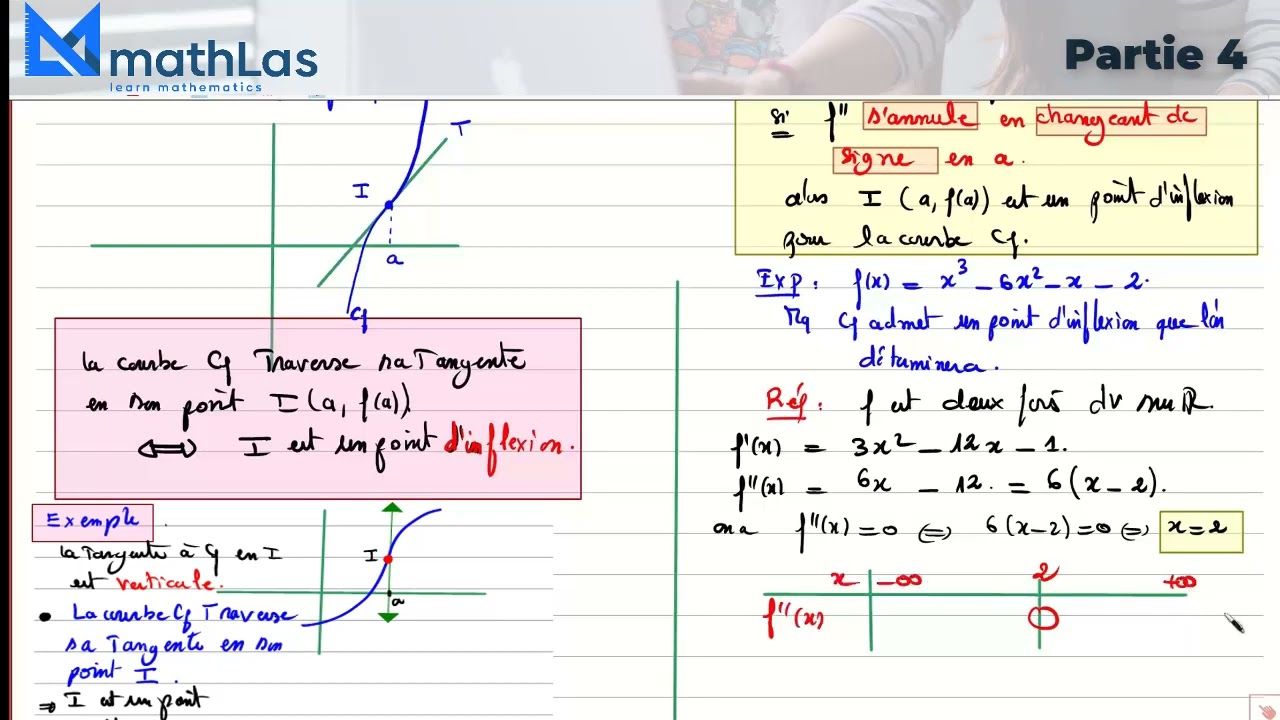 mathLas
learn mathematics
Partie 4
T
I
a
Cf
La courbe Cf Traverse sa Tangente
en son point I(a, f(a))
⟺ I est un point d'inflexion.
Exemple
La Tangente à Cf en I
est verticale.
• La courbe Cf Traverse
sa Tangente en son
point I.
⇒ I est un point
I
a
si f'' s'annule en changeant de
signe en a.
alors I (a, f(a)) est un point d'inflexion
pour la courbe Cf.
Exp: f(x) = x³ - 6x² - x - 2.
Mq Cf admet un point d'inflexion que l'on
déterminera.
Rép: f est deux fois dv sur ℝ.
f'(x) = 3x² - 12x - 1.
f''(x) = 6x - 12. = 6(x - 2).
on a f''(x) = 0 ⟺ 6(x-2)=0 ⟺ x=2
x -∞ 2 +∞
f''(x) 0